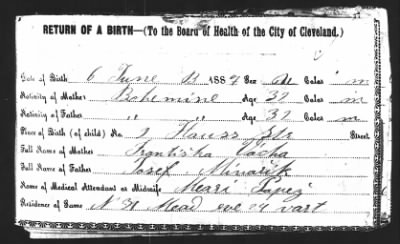 RETURN OF A BIRTH—(To the Board of Health of the City of Cleveland.)
Date of Birth 6 June 1889 Sex M Color m
Nativity of Mother Bohemine Age 32 m
Nativity of Father " " Age 32 Color m
Place of Birth (of child) No. 9 Street
Full Name of Mother Frantiska
Full Name of Father Josef
Name of Medical Attendant or Midwife Meari
Residence of Same N 31 Mead ave 24 vart